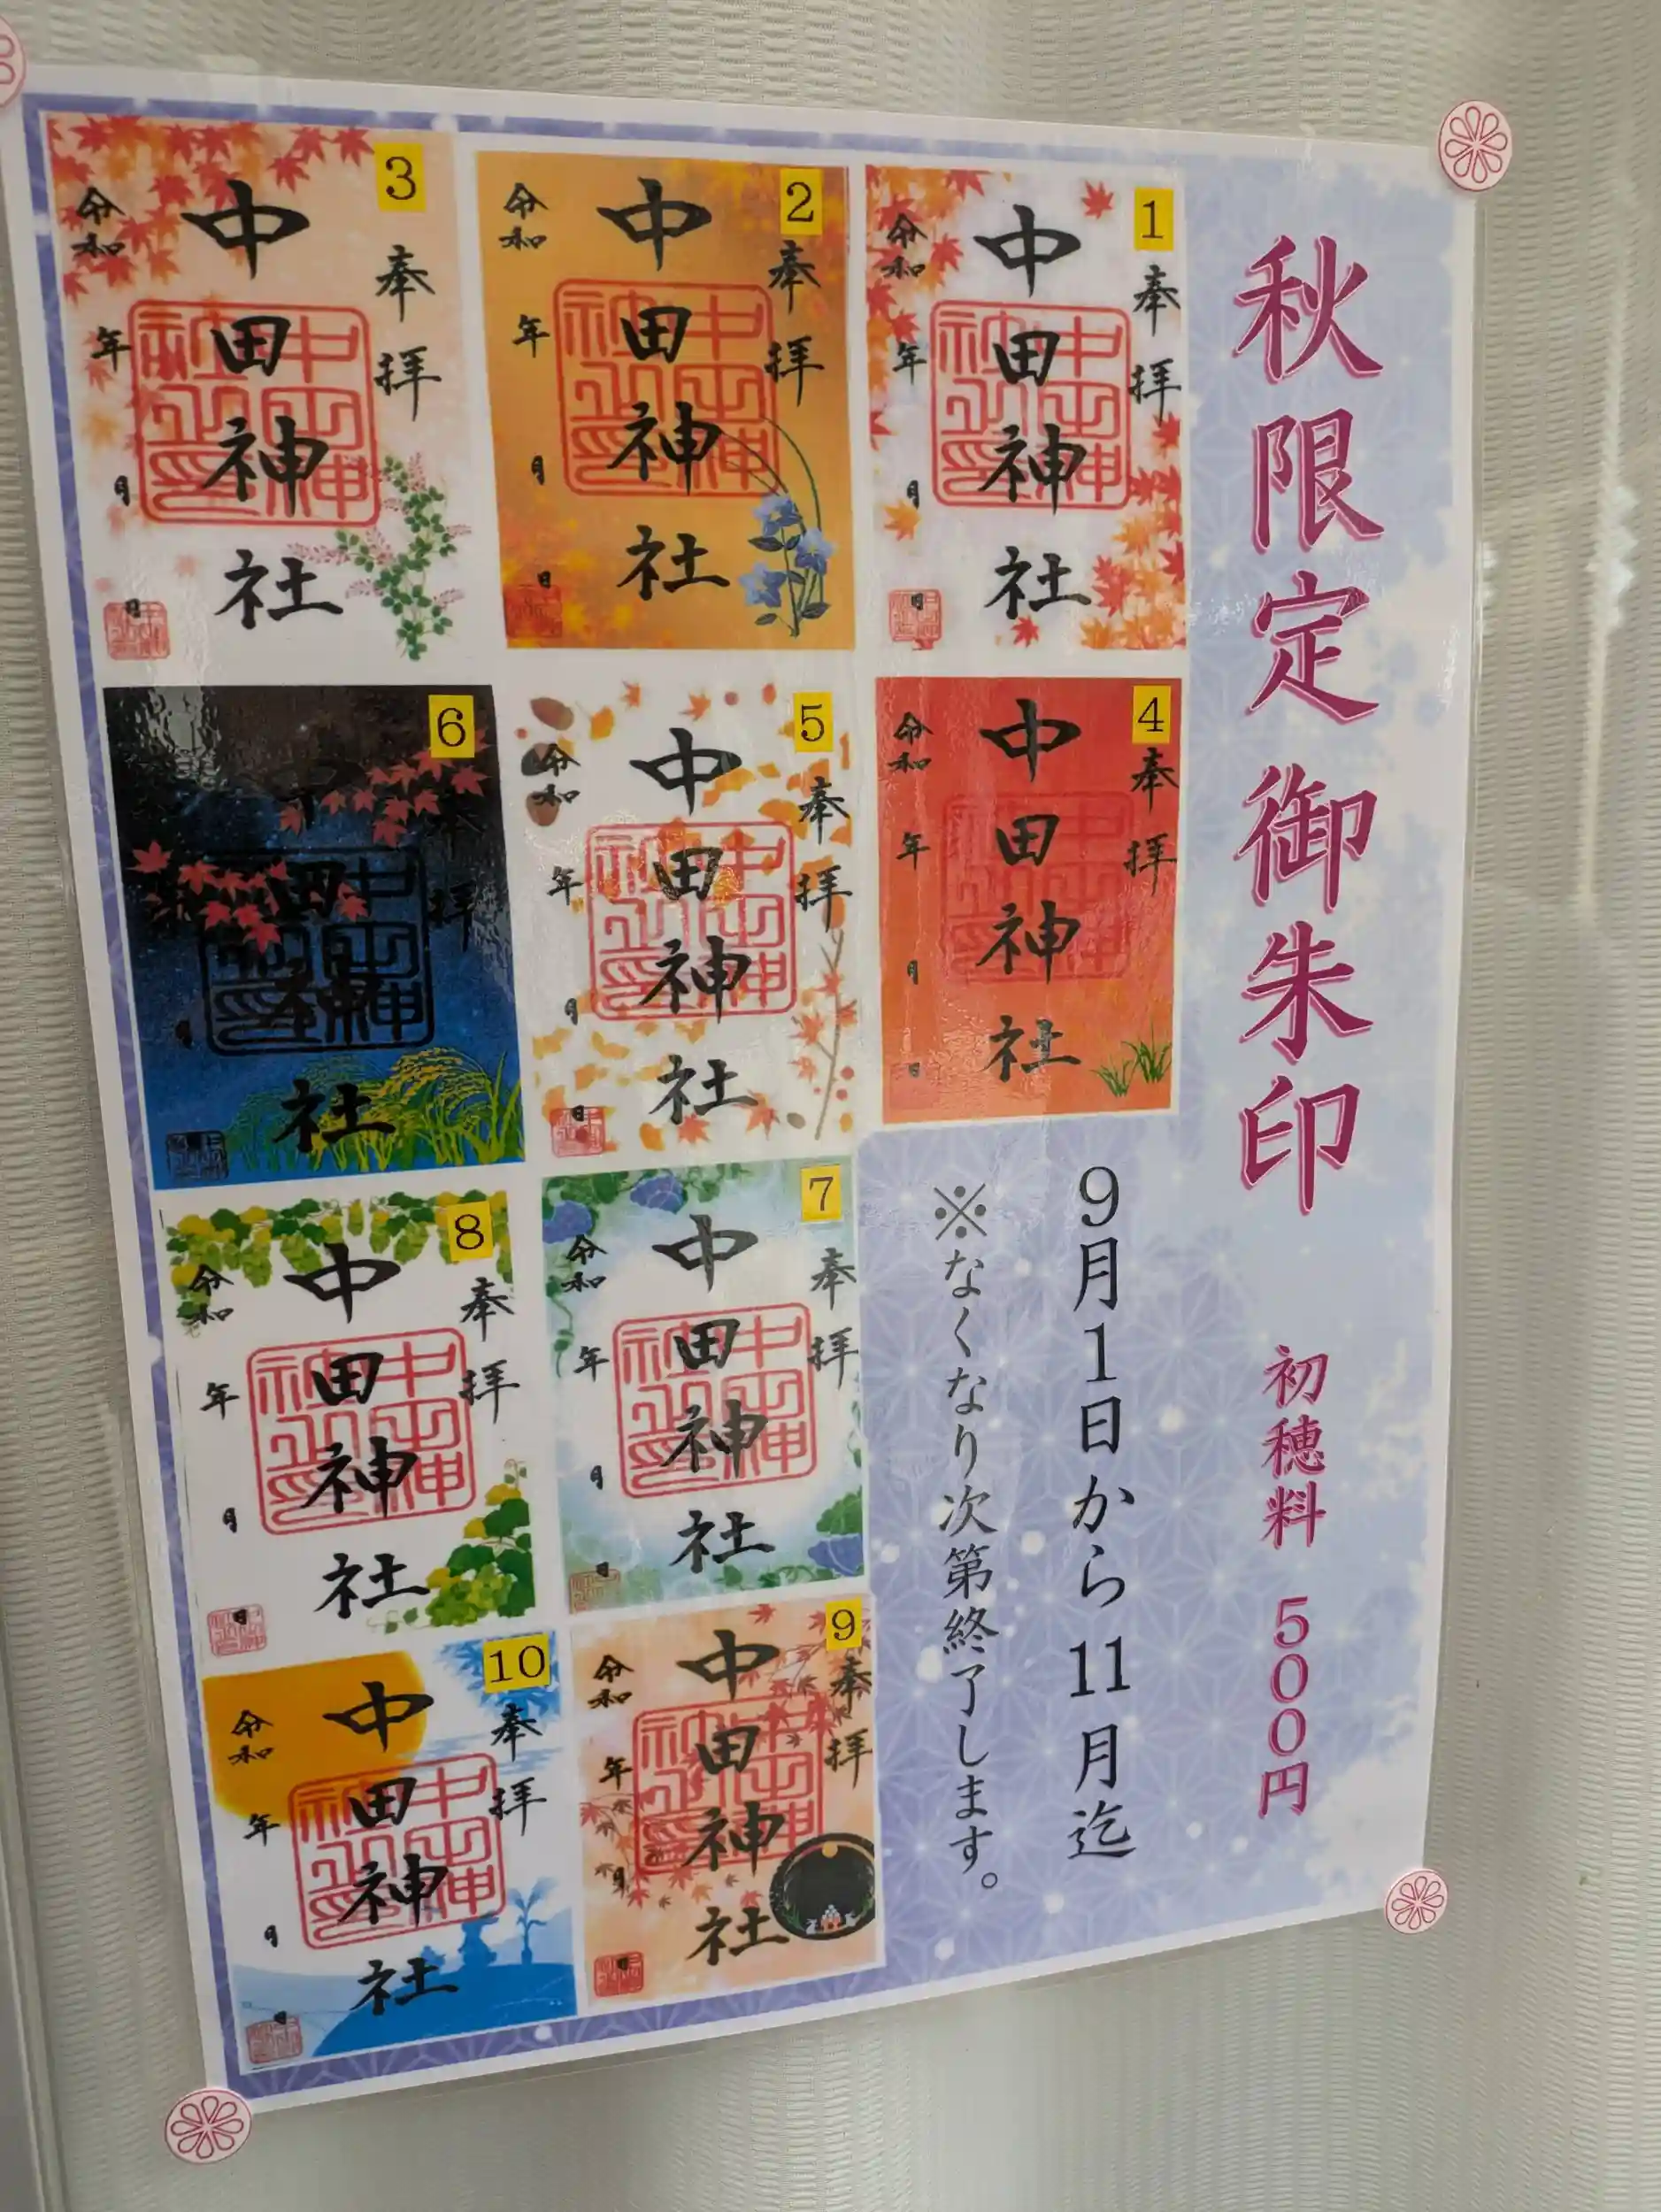 秋限定御朱印 初穂料 500円
9月1日から11月迄
※なくなり次第終了します。
1
奉拝
中田神社
令和 年 月 日
2
奉拝
中田神社
令和 年 月 日
3
奉拝
中田神社
令和 年 月 日
4
奉拝
中田神社
令和 年 月 日
5
奉拝
中田神社
令和 年 月 日
6
奉拝
中田神社
月
7
奉拝
中田神社
令和 年 月 日
8
奉拝
中田神社
令和 年 月 日
9
奉拝
中田神社
令和 年 月 日
10
奉拝
中田神社
令和 年 月 日